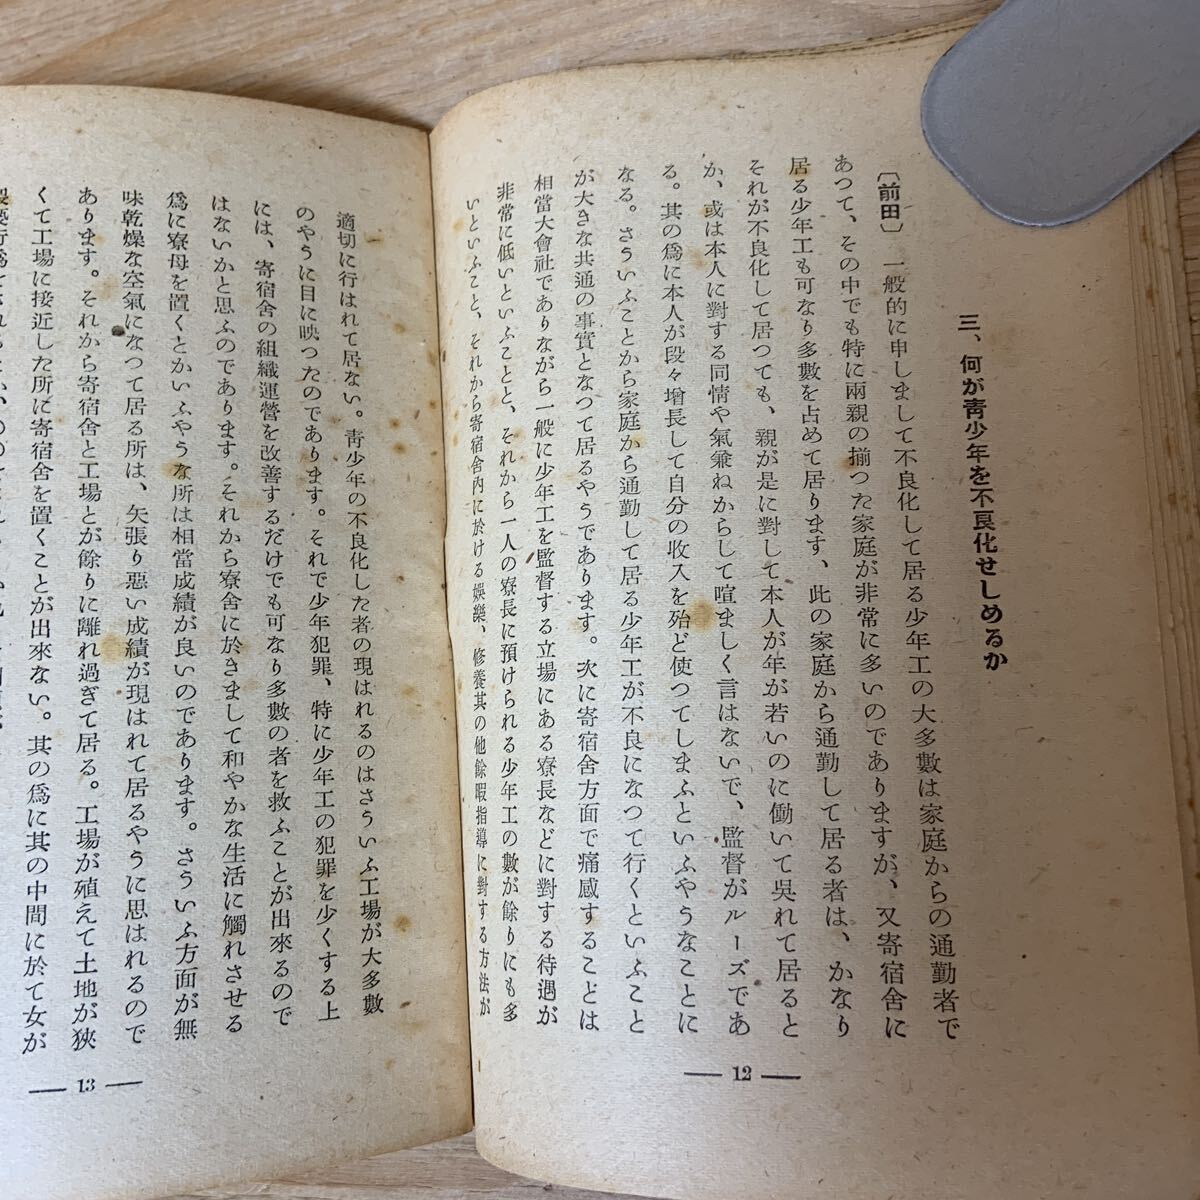 三、何が靑少年を不良化せしめるか
〔前田〕 一般的に申しまして不良化して居る少年工の大多數は家庭からの通勤者で
あつて、その中でも特に兩親の揃つた家庭が非常に多いのでありますが、又寄宿舍に
居る少年工も可なり多數を占めて居ります、此の家庭から通勤して居る者は、かなり
それが不良化して居つても、親が是に對して本人が年が若いのに働いて吳れて居ると
か、或は本人に對する同情や氣兼ねからして喧ましく言はないで、監督がルーズであ
る。其の爲に本人が段々增長して自分の收入を殆ど使つてしまふといふやうなことに
なる。さういふことから家庭から通勤して居る少年工が不良になつて行くといふこと
が大きな共通の事實となつて居るやうであります。次に寄宿舍方面で痛感することは
相當大會社でありながら一般に少年工を監督する立場にある寮長などに對する待遇が
非常に低いといふことと、それから一人の寮長に預けられる少年工の數が餘りにも多
いといふこと、それから寄宿舍內に於ける娛樂、修養其の他餘暇指導に對する方法が
— 12 —
適切に行はれて居ない。靑少年の不良化した者の現はれるのはさういふ工場が大多數
のやうに目に映つたのであります。それで少年犯罪、特に少年工の犯罪を少くする上
には、寄宿舍の組織運營を改善するだけでも可なり多數の者を救ふことが出來るので
はないかと思ふのであります。それから寮舍に於きまして和やかな生活に觸れさせる
爲に寮母を置くとかいふやうな所は相當成績が良いのであります。さういふ方面が無
味乾燥な空氣になつて居る所は、矢張り惡い成績が現はれて居るやうに思はれるので
あります。それから寄宿舍と工場とが餘りに離れ過ぎて居る。工場が殖えて土地が狹
くて工場に接近した所に寄宿舍を置くことが出來ない。其の爲に其の中間に於て女が
— 13 —